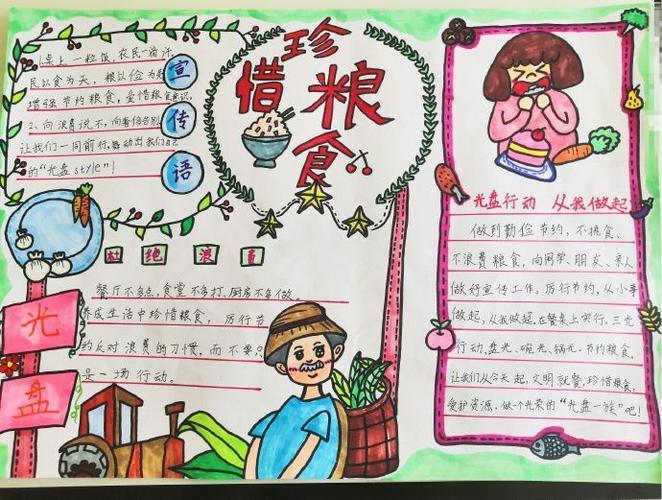 珍惜粮食
宣传语
1、桌上一粒饭，农民一滴汗，
民以食为天，粮以俭为
增强节约粮食，爱惜粮食意识，
2、向浪费说不，向奢侈告别
让我们一同前行，舞动出我们自己
的“光盘style”！
杜绝浪费
餐厅不多点，食堂不多打，厨房不多做。
养成生活中珍惜粮食，厉行节
约反对浪费的习惯，而不要只
是一场行动。
光盘
光盘行动 从我做起
做到勤俭节约，不挑食、
不浪费粮食，向同学、朋友、亲人
做好宣传工作。厉行节约，从小事
做起，从我做起。在餐桌上实行，三光
行动，盘光、碗光、锅光。节约粮食，
让我们从今天起，文明就餐，珍惜粮食，
爱护资源，做一个光荣的“光盘一族”吧！